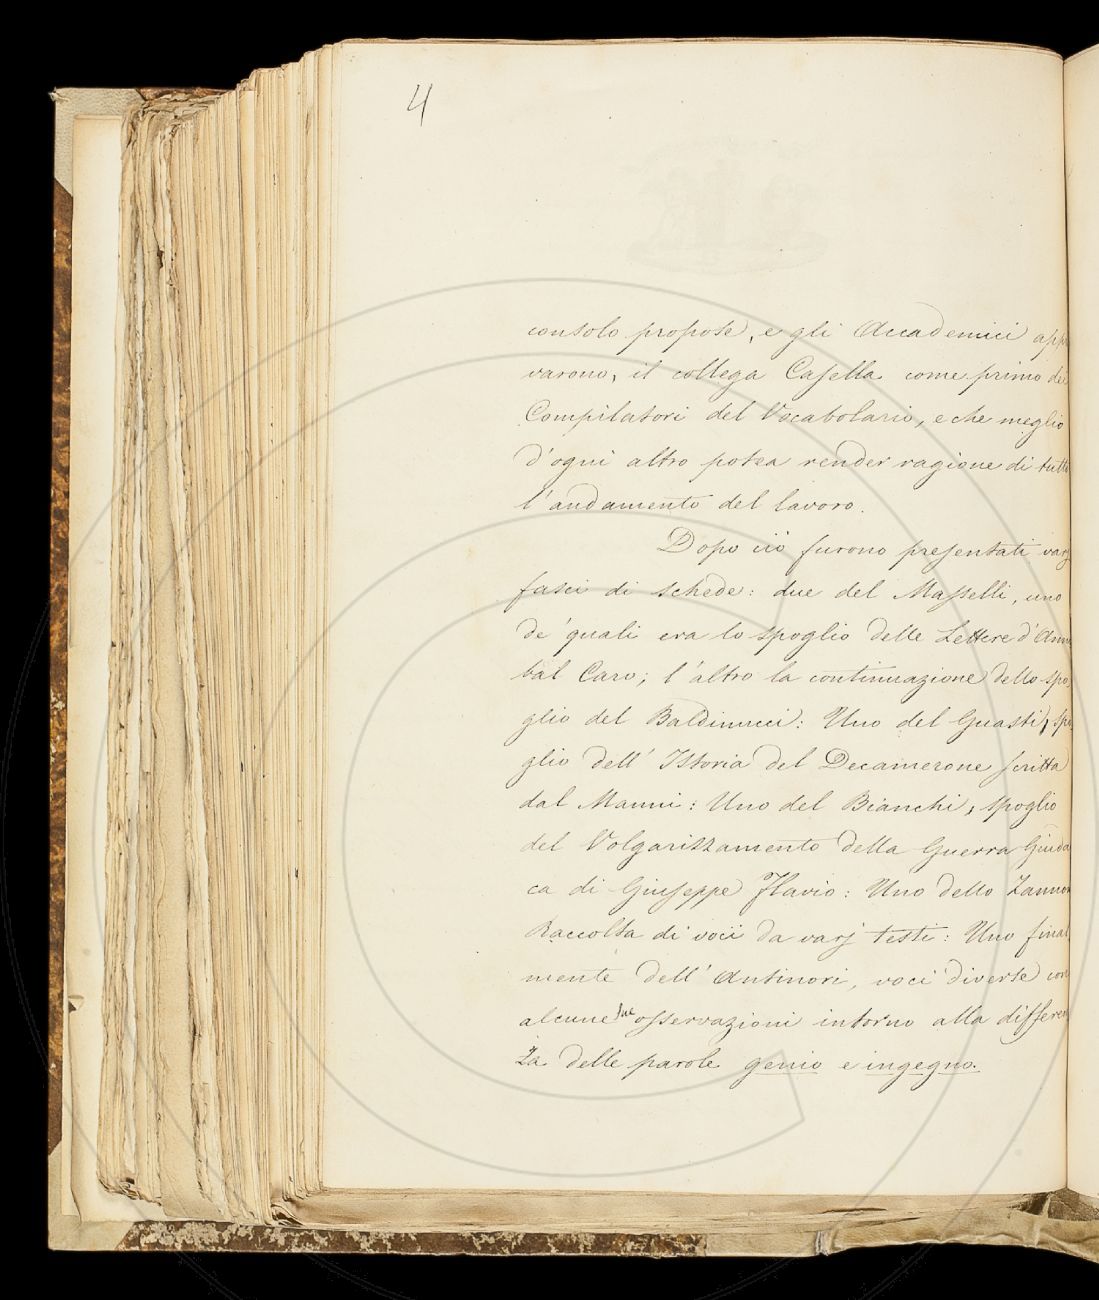 4
consolo propose, e gli Accademici appro
varono, il collega Casella come primo dei
Compilatori del Vocabolario, e che meglio
d'ogni altro potea render ragione di tutto
l'andamento del lavoro.
Dopo ciò furono presentati varj
fasci di schede: due del Masselli, uno
de' quali era lo spoglio delle Lettere d'Anni
bal Caro; l'altro la continuazione dello spo
glio del Baldinucci: Uno del Guasti, spo
glio dell'Istoria del Decamerone scritta
dal Manni: Uno del Bianchi, spoglio
del Volgarizzamento della Guerra Giuda
ca di Giuseppe Flavio: Uno dello Zannoni
Raccolta di voci da varj testi: Uno final
mente dell'Antinori, voci diverse con
alcune sue osservazioni intorno alla differen
za delle parole genio e ingegno.